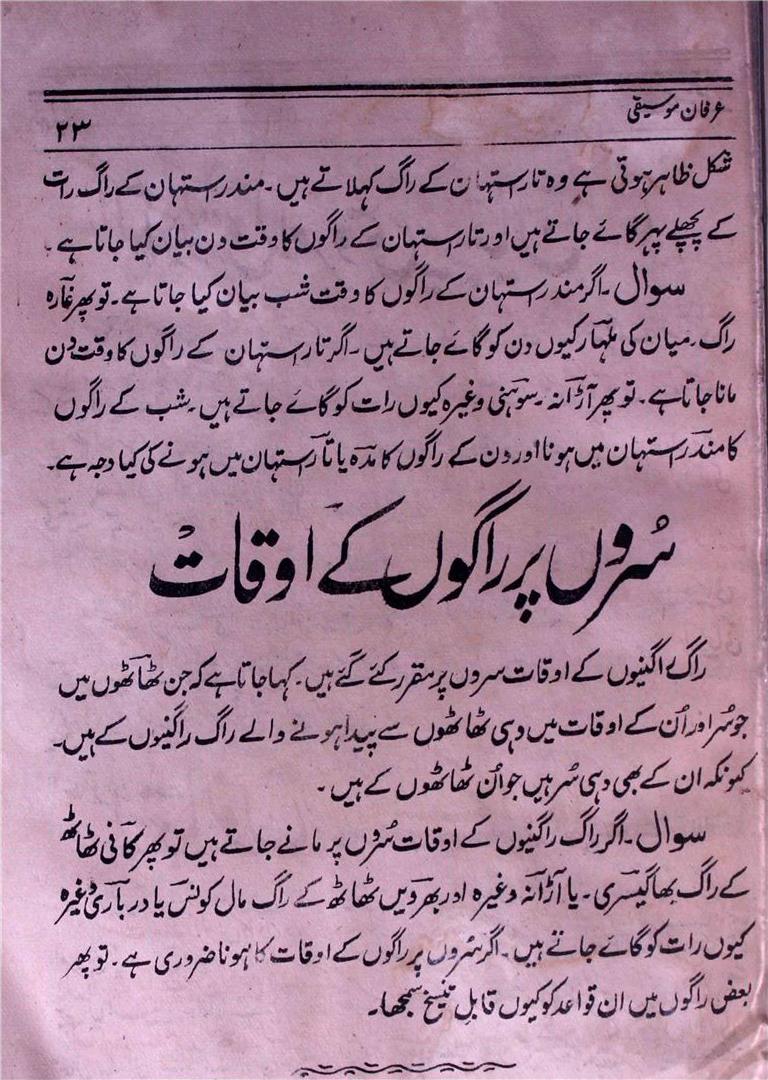 عرفان موسیقی
۲۳
شکل ظاہر ہوتی ہے وہ تار استہان کے راگ کہلاتے ہیں۔ مندر استہان کے راگ رات
کے پچھلے پہر گائے جاتے ہیں اور تار استہان کے راگوں کا وقت دن بیان کیا جاتا ہے۔
سوال۔ اگر مندر استہان کے راگوں کا وقت شب بیان کیا جاتا ہے۔ تو پھر غارہ
راگ۔ میان کی ملہار کیوں دن کو گائے جاتے ہیں۔ اگر تار استہان کے راگوں کا وقت دن
مانا جاتا ہے۔ تو پھر آڑانہ۔ سوہنی وغیرہ کیوں رات کو گائے جاتے ہیں۔ شب کے راگوں
کا مندر استہان میں ہونا اور دن کے راگوں کا مدہ یا تار استہان میں ہونے کی کیا وجہ ہے۔
سُروں پر راگوں کے اوقات
راگ راگنیوں کے اوقات سروں پر مقرر کئے گئے ہیں۔ کہا جاتا ہے کہ جن ٹھاٹھوں میں
جو سُر اور اُن کے اوقات میں وہی ٹھاٹھوں سے پیدا ہونے والے راگ راگنیوں کے ہیں۔
کیونکہ ان کے بھی وہی سُر ہیں جو اُن ٹھاٹھوں کے ہیں۔
سوال۔ اگر راگ راگنیوں کے اوقات سُروں پر مانے جاتے ہیں تو پھر کافی ٹھاٹھ
کے راگ بھاگیسری۔ یا آڑانہ وغیرہ اور بھرویں ٹھاٹھ کے راگ مال کونس یا درباری وغیرہ
کیوں رات کو گائے جاتے ہیں۔ اگر سُروں پر راگوں کے اوقات کا ہونا ضروری ہے۔ تو پھر
بعض راگوں میں ان قواعد کو کیوں قابلِ تنسیخ سمجھا۔